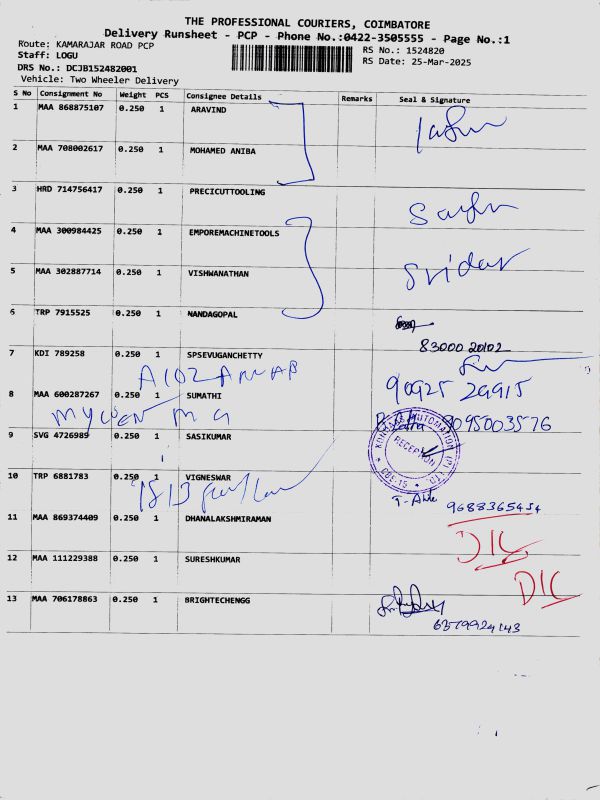 THE PROFESSIONAL COURIERS, COIMBATORE
Delivery Runsheet - PCP - Phone No.:0422-3505555 - Page No.:1
Route: KAMARAJAR ROAD PCP
Staff: LOGU
DRS No.: DCJB152482001
Vehicle: Two Wheeler Delivery
RS No.: 1524820
RS Date: 25-Mar-2025
S No Consignment No Weight PCS Consignee Details Remarks Seal & Signature
1 MAA 868875107 0.250 1 ARAVIND
2 MAA 708002617 0.250 1 MOHAMED ANIBA
3 HRD 714756417 0.250 1 PRECICUTTOOLING
4 MAA 300984425 0.250 1 EMPOREMACHINETOOLS
5 MAA 302887714 0.250 1 VISHWANATHAN
Sridar
6 TRP 7915525 0.250 1 NANDAGOPAL
83000 20102
7 KDI 789258 0.250 1 SPSEVUGANCHETTY
90925 29915
8 MAA 600287267 0.250 1 SUMATHI
9095003576
9 SVG 4726989 0.250 1 SASIKUMAR
RECEPTION
CBE-15
10 TRP 6881783 0.250 1 VIGNESWAR
9688365454
11 MAA 869374409 0.250 1 DHANALAKSHMIRAMAN
D/C
12 MAA 111229388 0.250 1 SURESHKUMAR
D/C
13 MAA 706178863 0.250 1 BRIGHTECHENGG